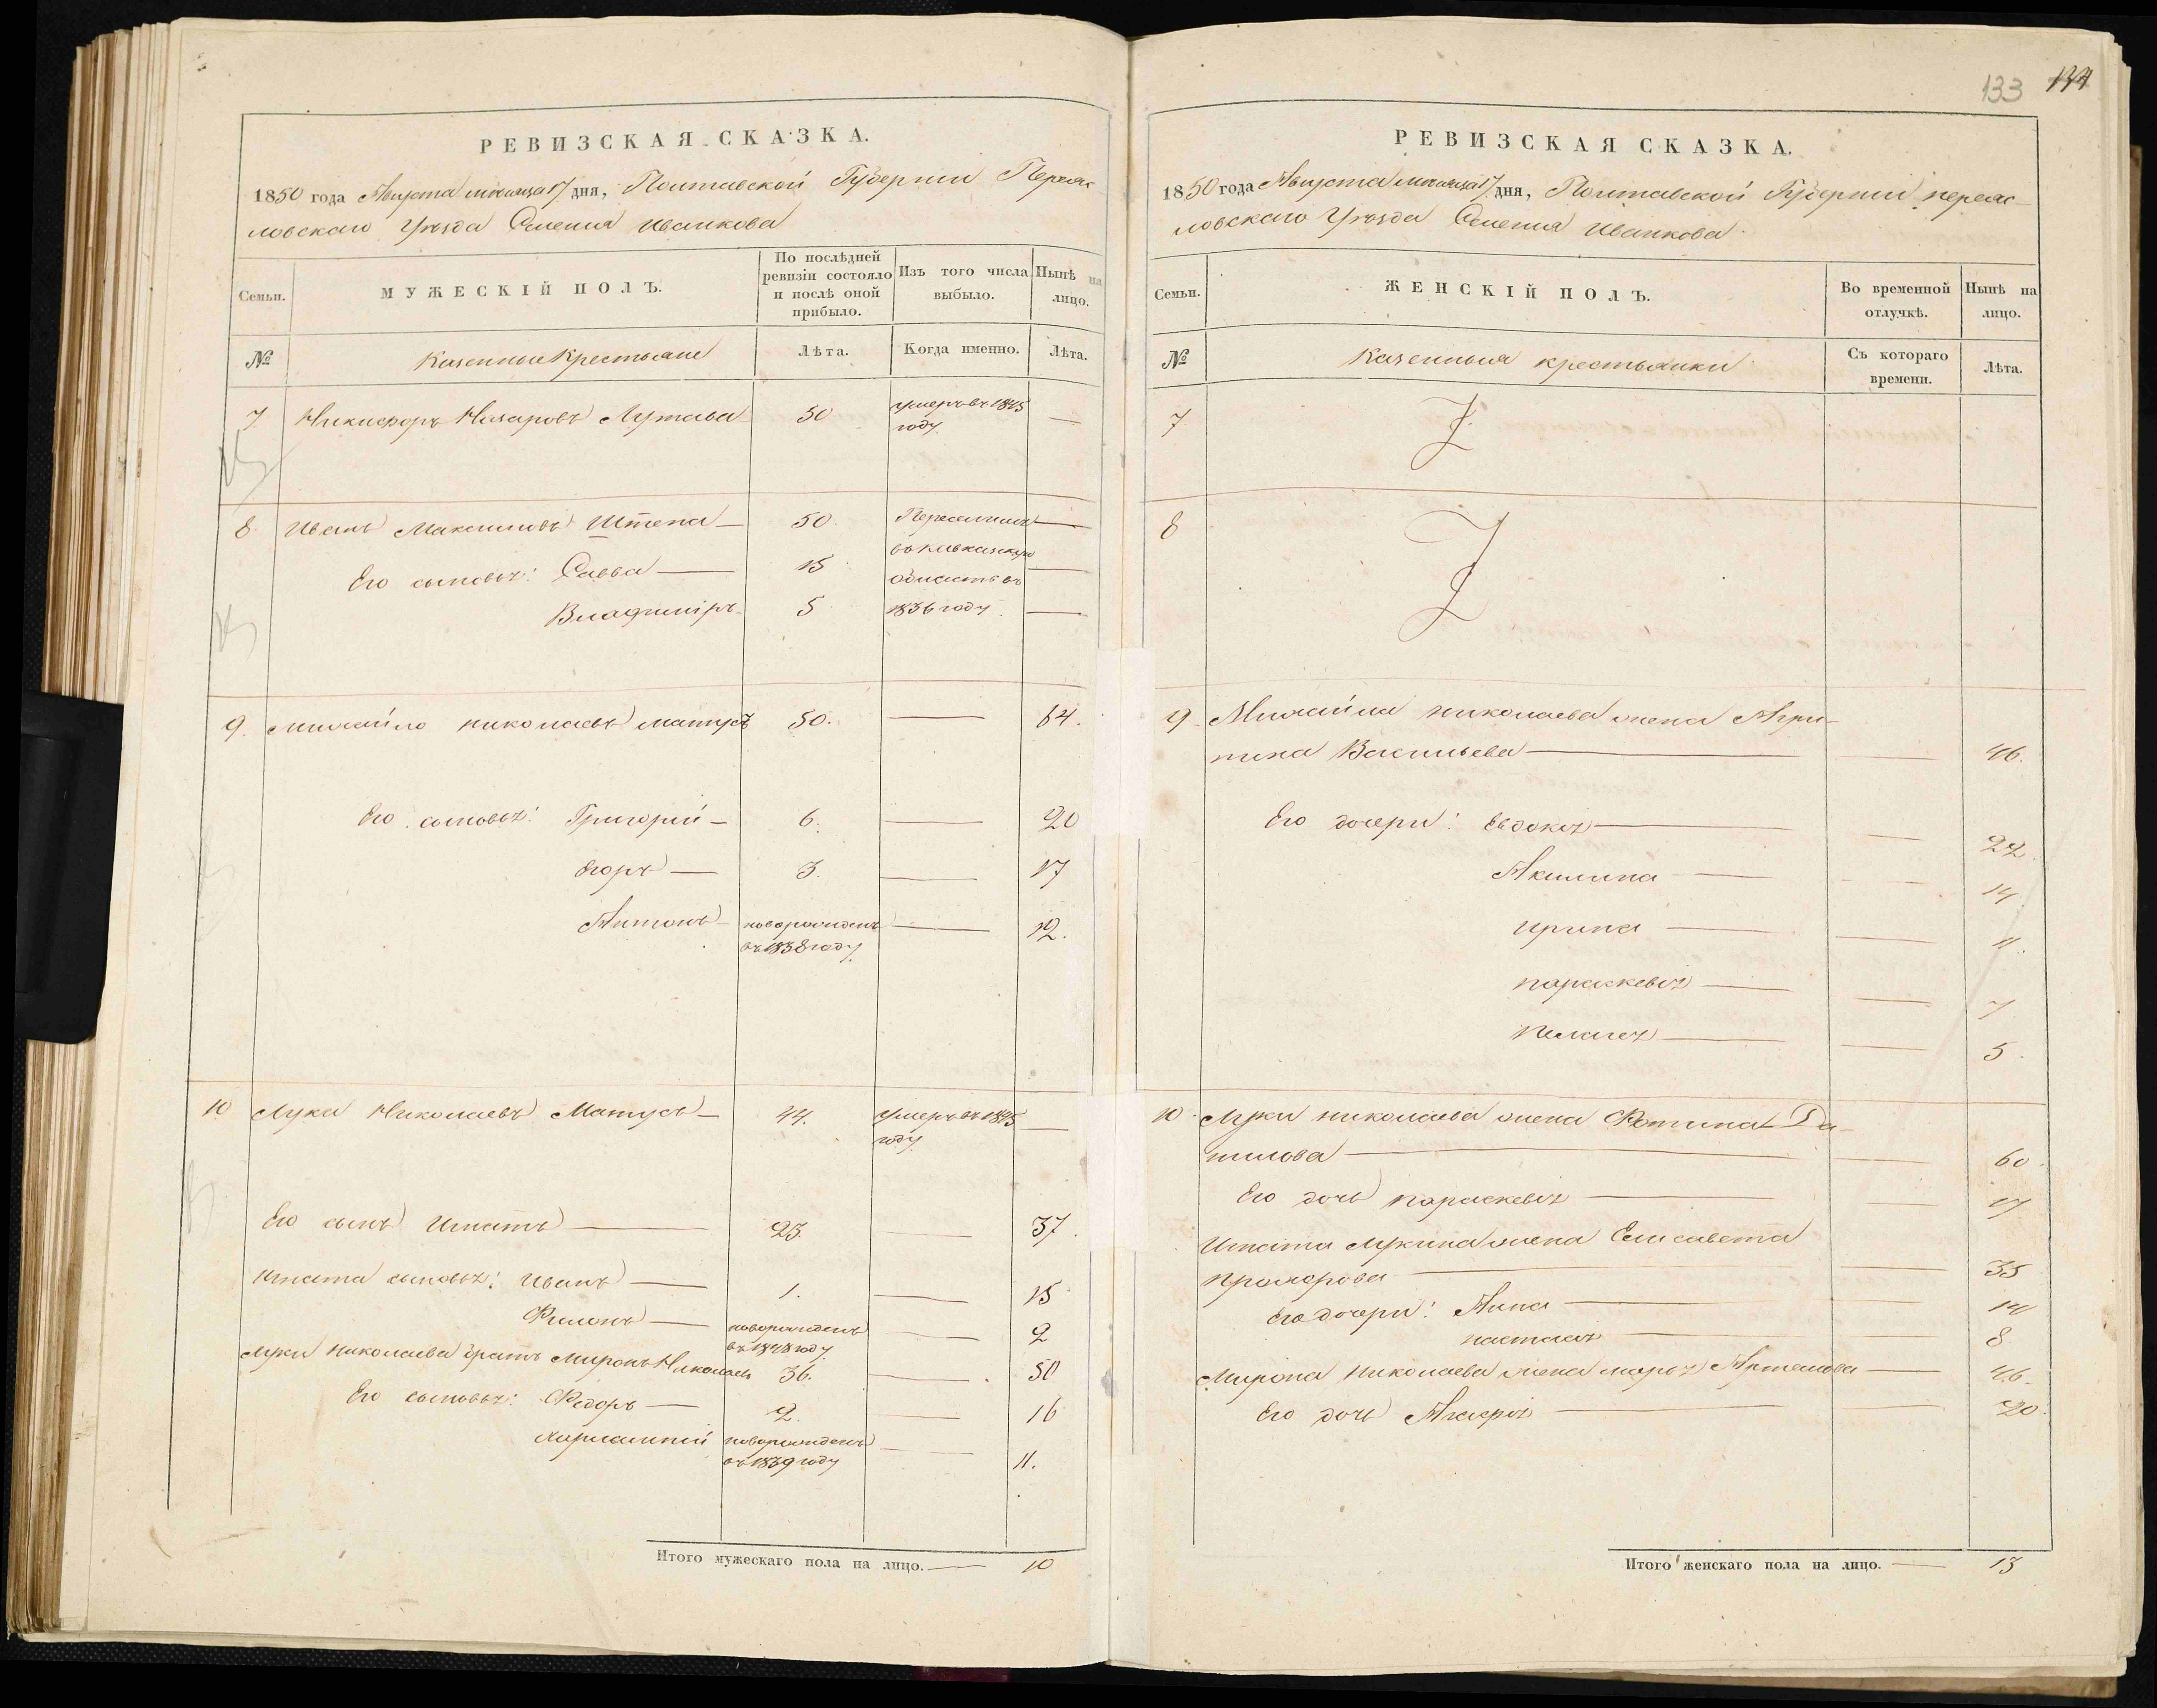 РЕВИЗСКАЯ СКАЗКА.
1850 года Августа месяца 17 дня, Полтавской Губернии Переяс
ловскаго Уѣзда Селения Иванкова
Семьи. МУЖЕСКІЙ ПОЛЪ. По послѣдней ревизіи состояло и послѣ оной прибыло. Изъ того числа выбыло. Нынѣ на лицо.
№ Казенные Крестьяне Лѣта. Когда именно. Лѣта.
7 Никифоръ Назаровъ Лутава 50 умеръ въ 1845 —
году
8 Иванъ Максимовъ Штепа — 50 Переселились —
въ Кавказскую
Его сыновья: Савва — 15 область въ —
Владимиръ 5 1836 году —
9. Михайло Николаевъ Матусь 50. — 64.
Его сыновья: Григорий — 6. — 20
Егоръ — 3. — 17
Антонъ новорожденъ — 12.
въ 1838 году
10 Лука Николаевъ Матусь — 44. умеръ въ 1845 —
году
Его сынъ Игнатъ — 23. — 37.
Игната сыновья: Иванъ — 1. — 15
Филонъ — новорожденъ — 2
въ 1848 году
Луки Николаева братъ Миронъ Николаевъ 36. — 50
Его сыновья: Федоръ — 2. — 16
Харлампий новорожденъ — 11.
въ 1839 году
Итого мужескаго пола на лицо. — 10
133 134
РЕВИЗСКАЯ СКАЗКА.
1850 года Августа месяца 17 дня, Полтавской Губернии Переяс
ловскаго Уѣзда Селения Иванкова
Семьи. ЖЕНСКІЙ ПОЛЪ. Во временной отлучкѣ. Нынѣ на лицо.
№ Казенныя крестьянки Съ котораго времени. Лѣта.
7
8
9. Михайла Николаева жена Агри-
пина Васильева — — 46.
Его дочери: Евдокия — — 22.
Акилина — — 14.
Ирина — — 11.
Параскевия — — 7
Пелагея — — 5.
10. Луки Николаева жена Фотина Да
нилова — — 60.
Его дочь Параскевия — — 17
Игната Лукина жена Елисавета
Прохорова — — 35
Его дочери: Анна — — 14
Настасия — — 8
Мирона Николаева жена Марья Артемова — 46.
Его дочь Агафия — — 20.
Итого женскаго пола на лицо. — 13